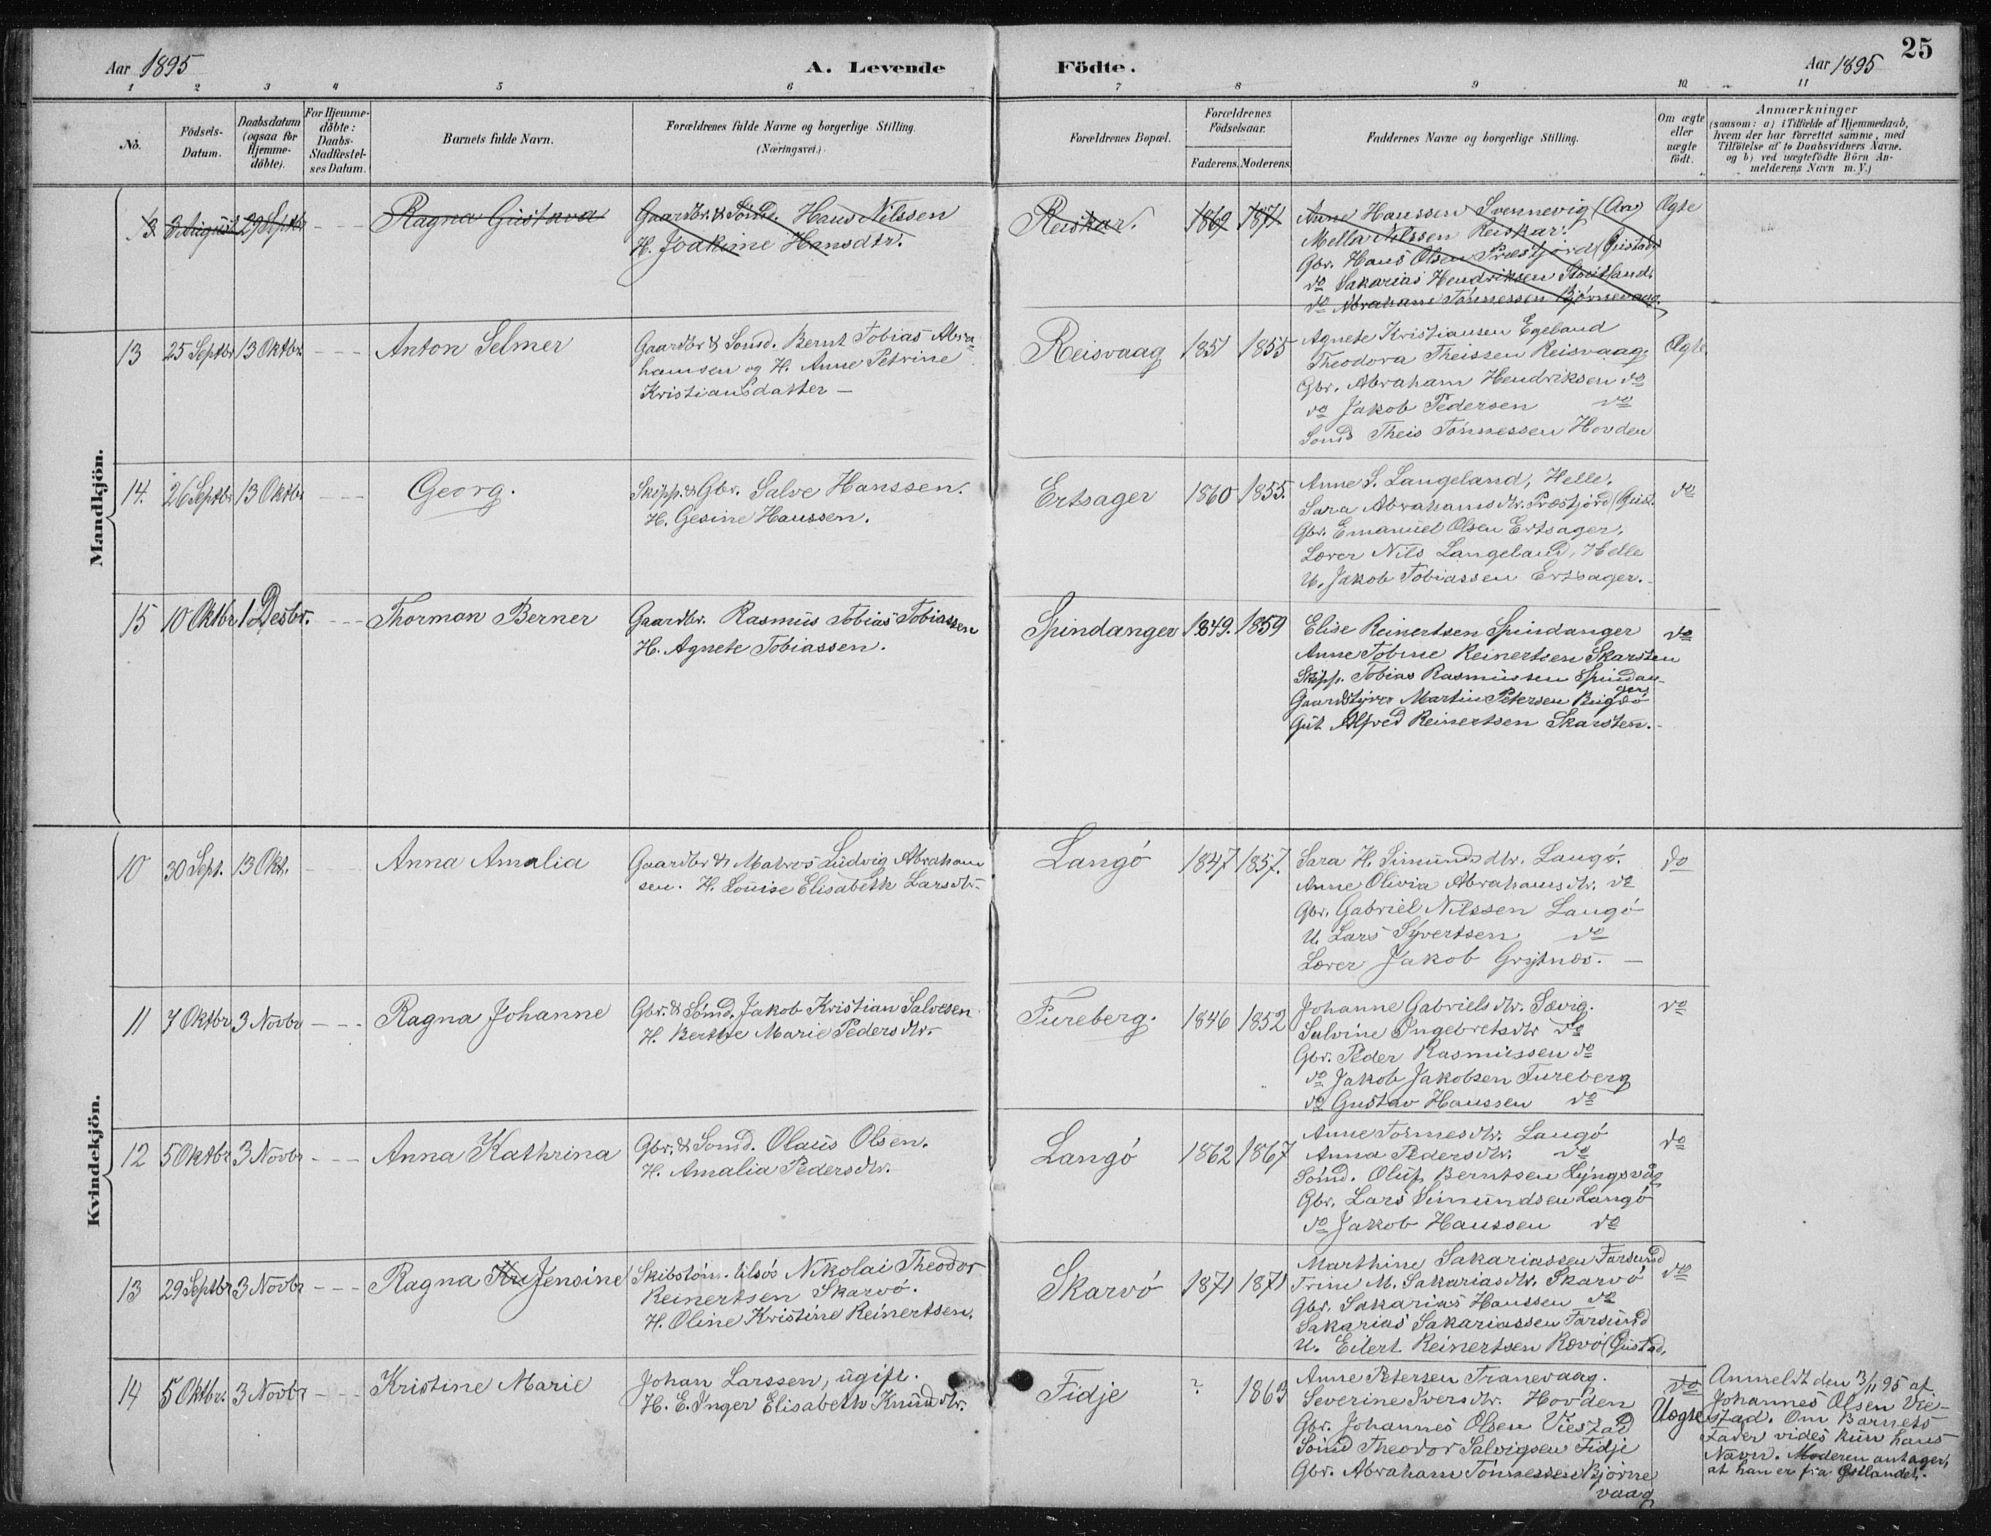 25
Aar 1895
A. Levende Födte.
Aar 1895
1 2 3 4 5 6 7 8 9 10 11
No.
Födsels-
Datum.
Daabsdatum
(ogsaa for
Hjemme-
döbte).
For Hjemme-
döbte:
Daabs-
Stadfæstel-
ses Datum.
Barnets fulde Navn.
Forældrenes fulde Navne og borgerlige Stilling.
(Næringsvei.)
Forældrenes Bopæl.
Forældrenes
Födselsaar.
Faderens. Moderens.
Faddernes Navne og borgerlige Stilling.
Om ægte
eller
uægte
födt.
Anmærkninger
(saasom: a) i Tilfælde af Hjemmedaab,
hvem der har forrettet samme, med
Tilföielse af to Daabsvidners Navne.
og b) ved uægtefödte Börn An-
melderens Navn m. V.)
Mandkjön.
13 3 August 29 Septbr --- Ragna Gustava
Gaardbr. & Sömd. Hans Nilssen
H. Joakime Hansdtr.
Reiskar. 1869 1871
Anne Hanssen Svennevig (Aa)
Mella Nilssen Reiskar.
Gbr. Hans Olsen Præstjord (Gustad)
do Sakarias Hendriksen Stoutland.
do Abraham Tönnessen Bjørnevaag.
Ægte
13 25 Septbr 13 Oktbr --- Anton Selmer
Gaardbr & Sömd. Bernt Tobias Abra-
hamsen og H. Anne Petrine
Kristiansdatter —
Reisvaag 1851 1855
Agnete Kristiansen Egeland
Theodora Theissen Reisvaag.
Gbr. Abraham Hendriksen do
do Jakob Pedersen do
Sömd Theis Tönnessen Hovden
Ægte
14. 26 Septbr 13 Oktbr --- Georg.
Skipp. & Gbr. Salve Hanssen.
H. Gesine Hanssen.
Ertsager 1860 1855.
Anne S. Langeland, Helle.
Sara Abrahamsdtr. Præstjord (Gust.
Gbr. Emanuel Olsen Ertsager.
Lærer Nils Langeland, Helle
U. Jakob Tobiassen Ertsager.
do
15 10 Oktbr. 1 Desbr. --- Thorman Berner
Gaardbr. Rasmus Tobias Tobiassen
H. Agnete Tobiassen.
Spindanger 1849. 1859
Elise Reinertsen Spindanger
Anne Tobine Reinertsen Skarsten
Skipp. Tobias Rasmussen Spindan-
ger
Gaardstyrer Martin Petersen Bugdö
Gut Alfred Reinertsen Skarsten.
do
Kvindekjön.
10 30 Sept. 13 Okt. --- Anna Amalia
Gaardbr & Matros Ludvig Abraham
sen. H. Louise Elisabeth Larsdtr.
Langö 1847 1857.
Sara H. Simundsdtr. Langö.
Anne Olivia Abrahamsdtr. do
Gbr. Gabriel Nilssen Langö
U. Lars Syvertsen do
Lærer Jakob Grytnæs. —
do
11 7 Oktbr 3 Novbr --- Ragna Johanne
Gbr. & Sömd. Jakob Kristian Salvesen
H. Berthe Marie Pedersdtr.
Fureberg. 1846 1852
Johanne Gabrielsdtr. Sævig.
Salvine Ingebretsdtr do
Gbr. Peder Rasmussen do
do Jakob Jakobsen Fureberg
do Gustav Hanssen do
do
12 5 Oktbr 3 Novbr --- Anna Kathrina
Gbr. & Sömd. Olaus Olsen.
H. Amalia Pedersdtr.
Langö 1862 1867
Anne Tormesdtr. Langö
Anna Pedersdtr. do
Sömd. Oluf Berntsen Lyngsvåg
Gbr. Lars Simundsen Langö
do Jakob Hanssen do
do
13 29 Septbr 3 Novbr --- Ragna Jensine
Skibstöm. tilsös Nikolai Theodor
Reinertsen Skarvö.
H. Oline Kristine Reinertsen.
Skarvö 1871 1871
Marthine Sakariassen Farsund
Trine M. Sakariasdtr. Skarvö
Gbr. Sakarias Hanssen do
Sakarias Sakariassen Farsund
U. Eilert Reinertsen Rævö (Gustad.
do
14 5 Oktbr. 3 Novbr --- Kristine Marie
Johan Larssen, ugift.
H. E. Inger Elisabeth Knudsdtr.
Fidje ? 1863
Anne Petersen Tranevaag.
Severine Iversdtr. Hovden
Gbr. Johannes Olsen Viestad
Sömd Theodor Salvigsen Fidje
Gbr. Abraham Tönnessen Bjørne
vaag
do
Uægte
Anmeldt den 3/11 95 af
Johannes Olsen Vie-
stad. Om Barnets
Fader vides kun hans
Navn. Moderen antager,
at han er fra Østlandet.